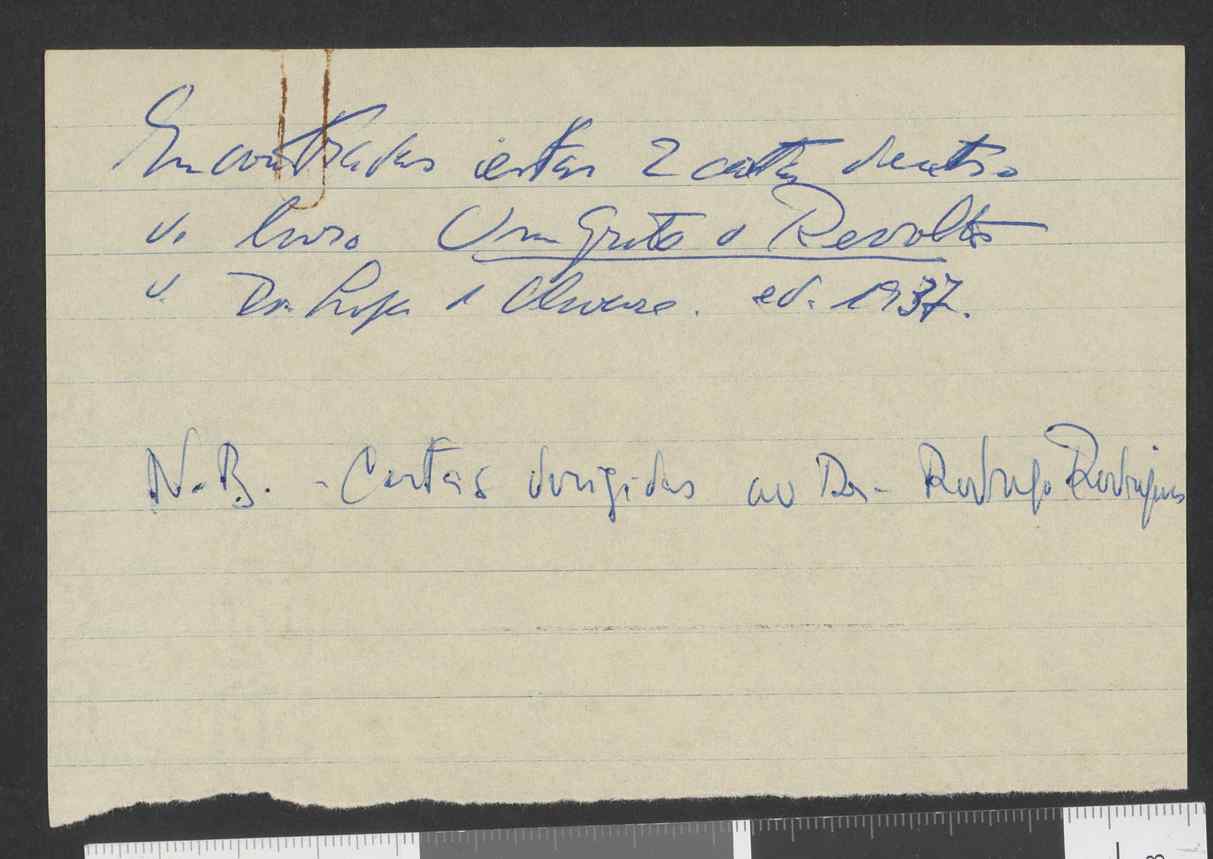 Encontradas estas 2 cartas dentro
do livro Um Grito de Revolta
do Dr. Lopes d'Oliveira. ed. 1937.
N.B. - Cartas dirigidas ao Dr. Rodrigo Rodrigues